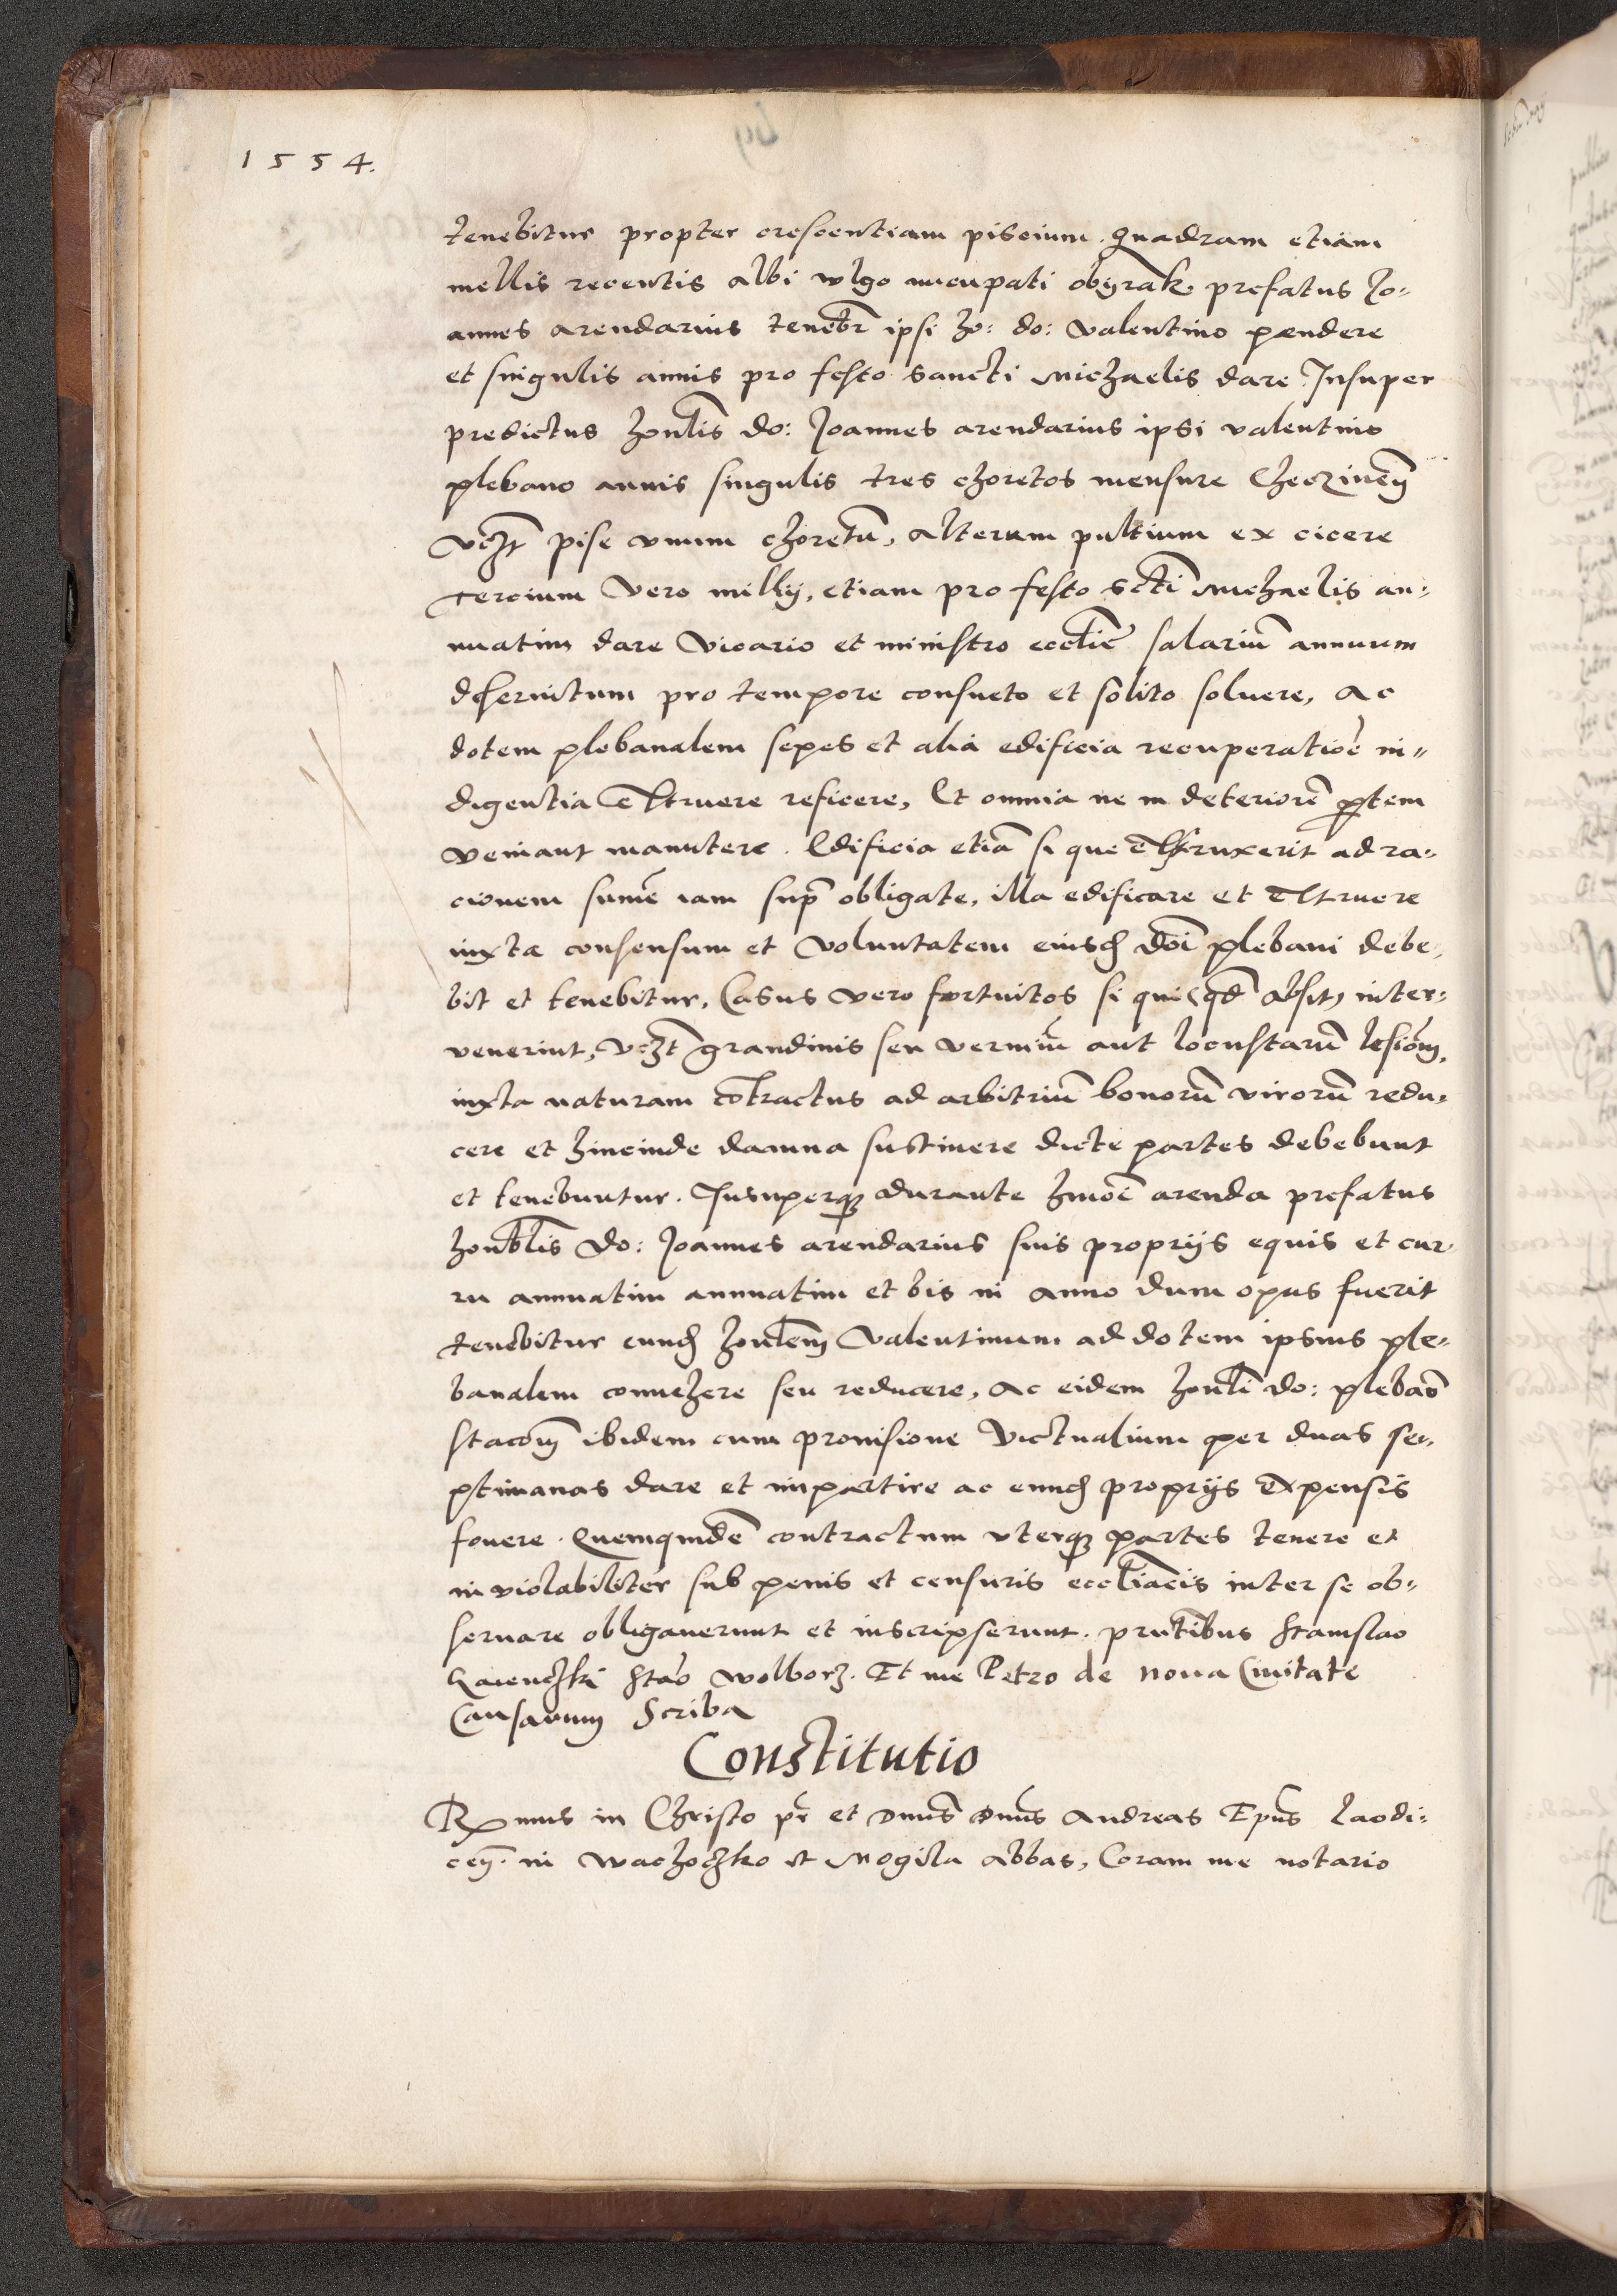 1554.
tenebitur propter crescentiam piscium. Quadram etiam
mellis recentis albi wlgo nucupati obyrak prefatus Jo-
annes arendarius tenebr ipsi ho: do: Valentino pendere
et singulis annis pro festo sancti Michaelis dare. Insuper
predictus honlis do: Joannes arendarius ipsi Valentino
plebano annis singulis tres choretos mensure
vczt pise vnum choretu, alterum pultium ex cicere
tercium vero milly, etiam pro festo scti Michaelis an-
nuatim dare Vicario et ministro ecclie salariu annuum
deseruitum pro tempore consueto et solito soluere, ac
dotem plebanalem sepes et alia edificia recuperatioe in-
digentia extruere reficere, Et omnia ne in deteriore ptem
veniant manutere. Edificia etia si que extruxerit ad ra-
cionem sume iam supra obligate, illa edificare et extruere
iuxta consensum et voluntatem eiusd doi plebani debe-
bit et tenebitur, Casus vero fortuitos si qui (qd absit) inter-
venerint, vczt grandinis seu vermiu aut locustaru lesiom,
iuxta naturam cotractus ad arbitriu bonoru viroru redu-
cere et hincinde damna sustinere dicte partes debebunt
et tenebuntur. Insuperq durante hmoi arenda prefatus
honblis do: Joannes arendarius suis propriis equis et cur-
ru annuatim annuatim et bis in anno dum opus fuerit
tenebitur eund honlem Valentinum ad dotem ipsius ple-
banalem conuehere seu reducere, ac eidem honli do: plebao
stacom ibidem cum prouisione victualium per duas se-
ptimanas dare et impartire ac eund propriis expensis
fouere. Quemquide contractum vterq partes tenere et
inviolabiliter sub penis et censuris eccliacis inter se ob-
seruare obligauerunt et inscripserunt. pntibus Stanislao
Wolborz. Et me Petro de Noua Ciuitate
Causarum Scriba
Constitutio
Rmus in Christo pr et dnus dnus Andreas Epus Laodi-
cen. in Wachoczko et Mogila abbas, Coram me notario